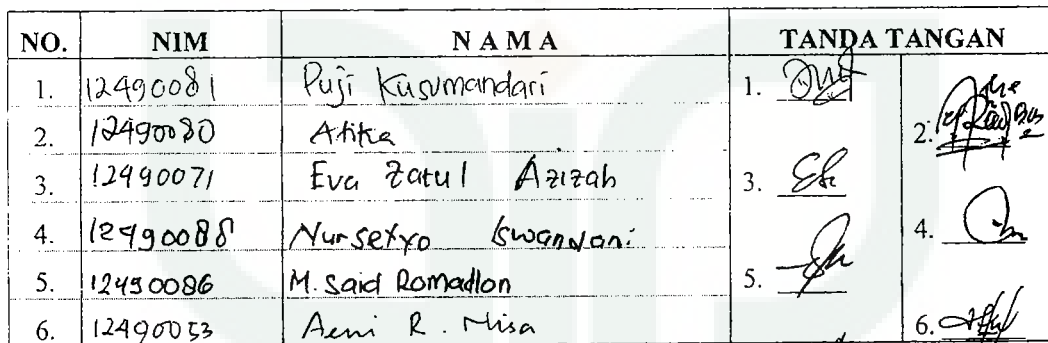 NO. NIM N A M A TANDA TANGAN
1. 12490081 Puji Kusumandari 1.
2. 12490080 Atika 2.
3. 12490071 Eva Zatul Azizah 3.
4. 12490088 Nursetyo Iswandani 4.
5. 12490086 M. Said Romadlon 5.
6. 12490053 Aeni R. Nisa 6.